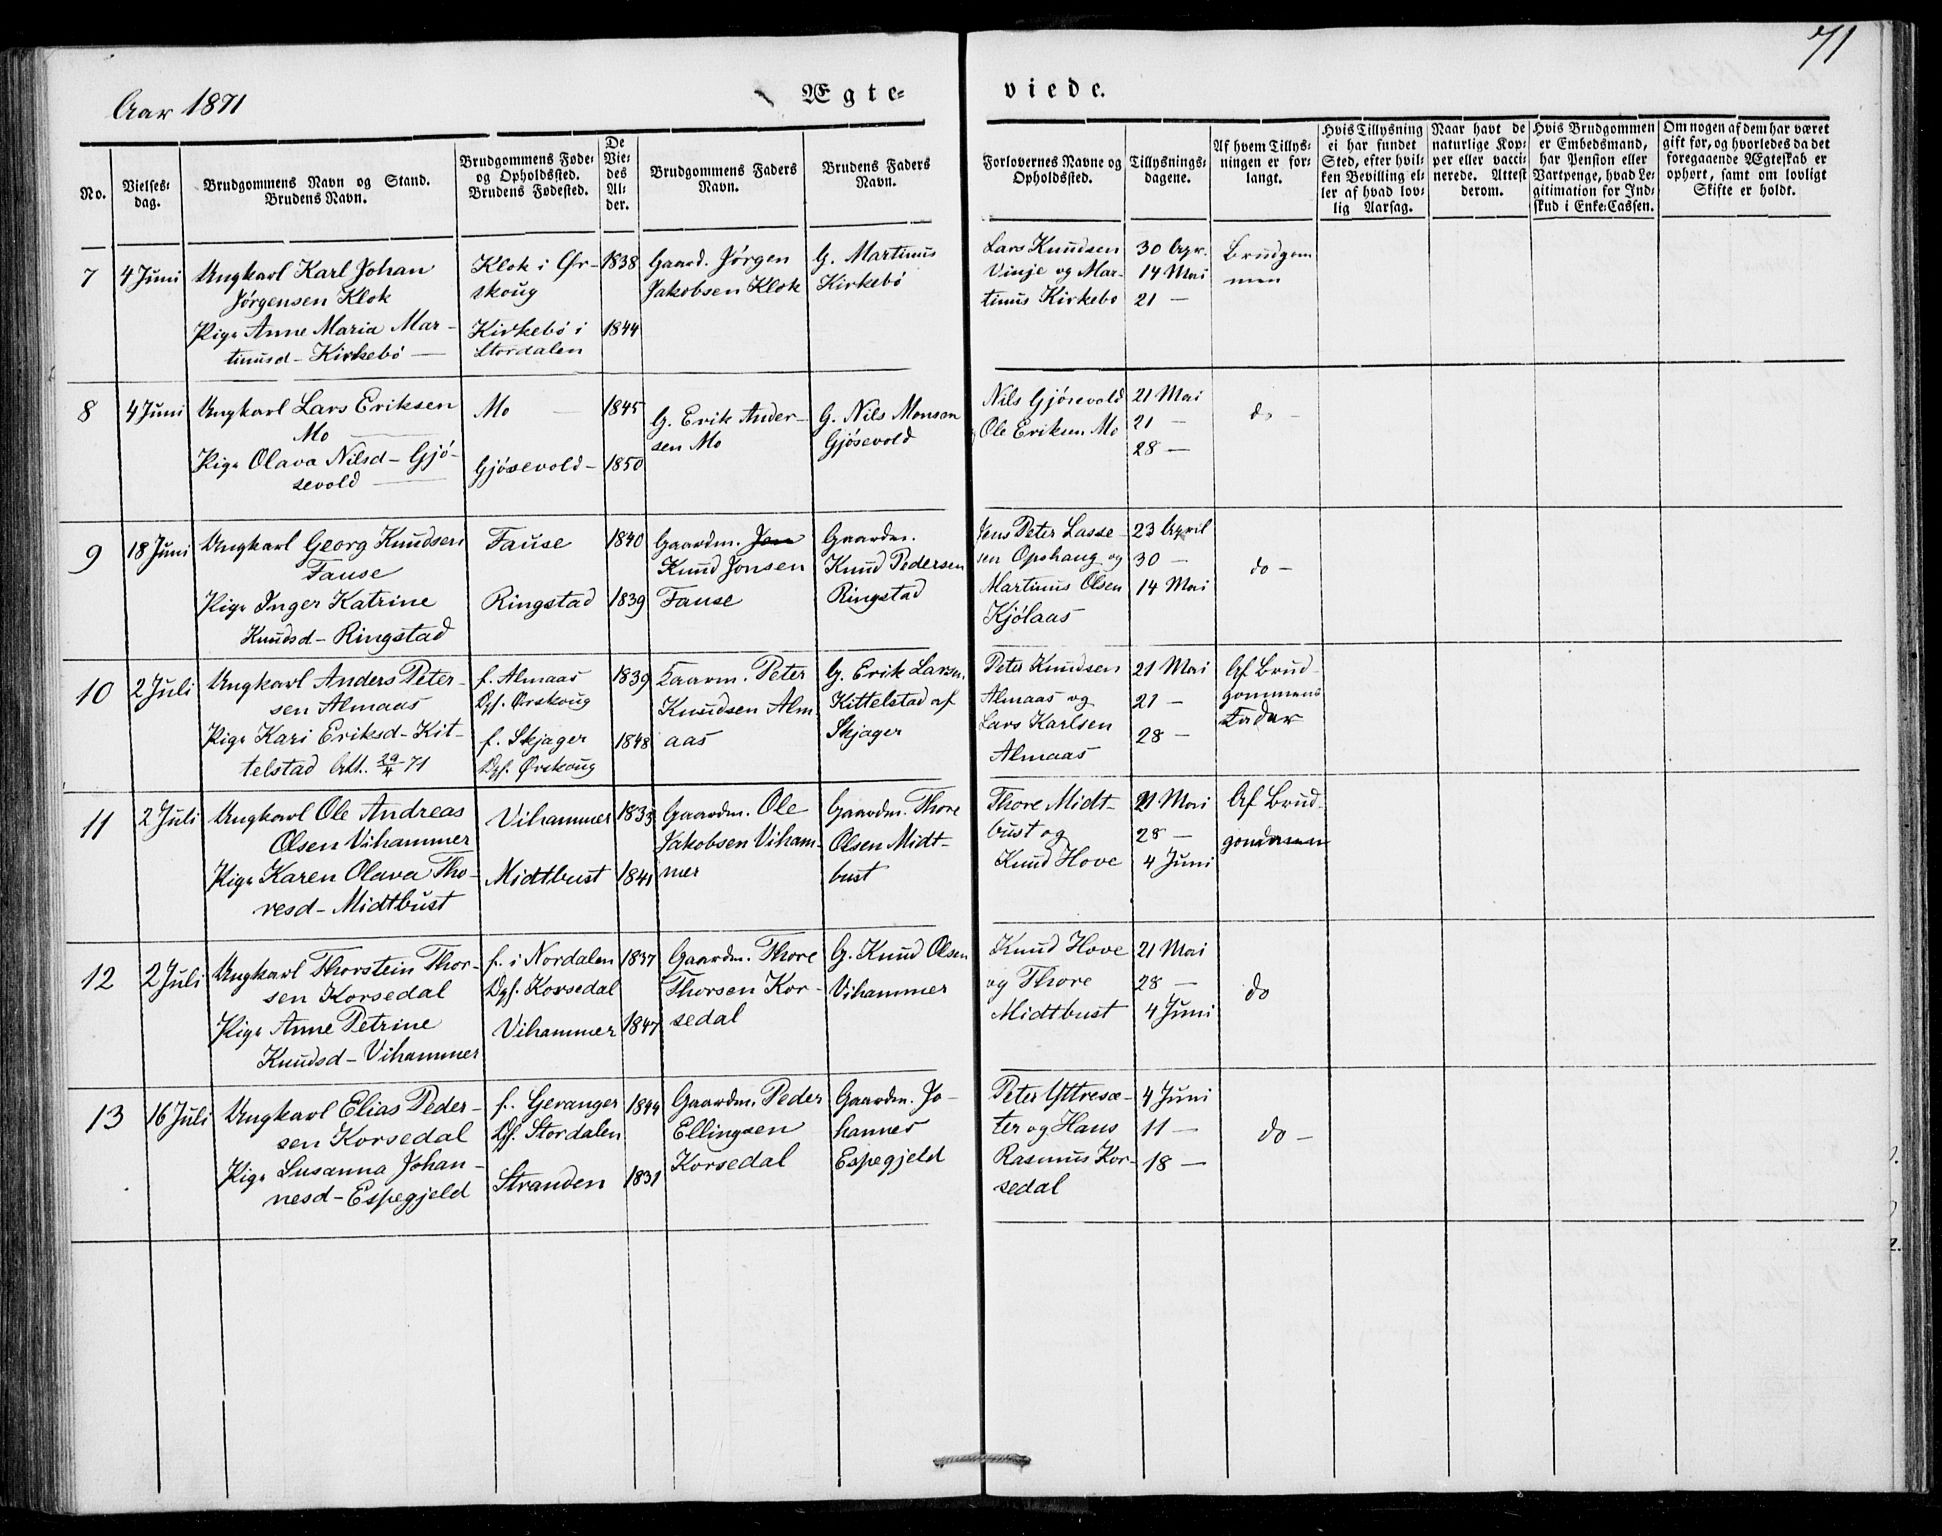 71
Aar 1871
Ægte-
viede.
No.
Vielses-
dag.
Brudgommens Navn og Stand.
Brudens Navn.
Brudgommens Føde-
og Opholdssted.
Brudens Fødested.
De
Vie-
des
Al-
der.
Brudgommens Faders
Navn.
Brudens Faders
Navn.
Forlovernes Navne og
Opholdssted.
Tillysnings-
dagene.
Af hvem Tillys-
ningen er for-
langt.
Hvis Tillysning
ei har fundet
Sted, efter hvil-
ken Bevilling el-
ler af hvad lov-
lig Aarsag.
Naar havt de
naturlige Kop-
per eller vacci-
nerede. Attest
derom.
Hvis Brudgommen
er Embedsmand,
har Pension eller
Vartpenge, hvad Le-
gitimation for Ind-
skud i Enke-Cassen.
Om nogen af dem har været
gift før, og hvorledes da det
foregaaende Ægteskab er
ophørt, samt om lovligt
Skifte er holdt.
7
4 Juni
Ungkarl Karl Johan
Jørgensen Klok
Pige Anne Maria Mar-
tinusd- Kirkebö —
Klok i Ør-
skoug
Kirkebö i
Stordalen
1838
1844
Gaard. Jørgen
Jakobsen Klok
G. Martinus
Kirkebö
Lars Knudsen
Vinje og Mar-
tinus Kirkebo
30 Apr.
14 Mai
21 —
Brudgom
men
8
4 Juni
Ungkarl Lars Eriksen
Mo —
Pige Olava Nilsd- Gjö-
sevold —
Mo —
Gjösevold-
1845
1850
G. Erik Ander-
sen Mo
G. Nils Monsen
Gjösevold
Nils Gjösevold
Ole Eriksen Mo
21 Mai
21 —
28 —
do -
9
18 Juni
Ungkarl Georg Knudsen
Fause
Pige Inger Katrine
Knudsd- Ringstad
Fause
Ringstad
1840
1839
Gaardm. Jon
Knud Jonsen
Fause
Gaardm.
Knud Pedersen
Ringstad
Jens Peter Lasse-
sen Opshaug og
Martinus Olsen
Kjölaas
23 April
30 —
14 Mai
do -
10
2 Juli
Ungkarl Anders Peter-
sen Almaas
Pige Kari Eriksd- Kit-
telstad Att. 29/4 71
f. Almaas
Opf. Ørskoug
f. Skjager
Opf. Ørskoug
1839
1848
Gaarm. Peter
Knudsen Alm
aas
G. Erik Larsen
Kittelstad af
Skjager
Peter Knudsen
Almaas og
Lars Karlsen
Almaas
21 Mai
21 —
28 —
Af Brud-
gommens
Fader
11
2 Juli
Ungkarl Ole Andreas
Olsen Vihammer
Pige Karen Olava Tho-
resd- Midtbust
Vihammer
Midtbust
1835
1841
Gaardm. Ole
Jakobsen Viham-
mer
Gaardm. Thore
Olsen Midt-
bust
Thore Midt-
bust og
Knud Hove
21 Mai
28 —
4 Juni
Af Brud-
gommen
12
2 Juli
Ungkarl Thorstein Thor-
sen Korsedal
Pige Anne Petrine
Knudsd- Vihammer
f. i Nordalen
Opf. Korsedal
Vihammer
1837
1847
Gaardm. Thore
Thorsen Kor-
sedal
G. Knud Olsen
Vihammer
Knud Hove
og Thore
Midtbust
21 Mai
28 —
4 Juni
do
13
16 Juli
Ungkarl Elias Peder-
sen Korsedal
Pige Susanna Johan-
nesd- Espegjeld
f. Geranger
Opf. Stordalen
Stranden
1844
1831
Gaardm. Peder
Ellingsen
Korsedal
Gaardm. Jo-
hannes
Espegjeld
Peter Yttresæ-
ter og Hans
Rasmus Kor-
sedal
4 Juni
11 —
18 —
do -